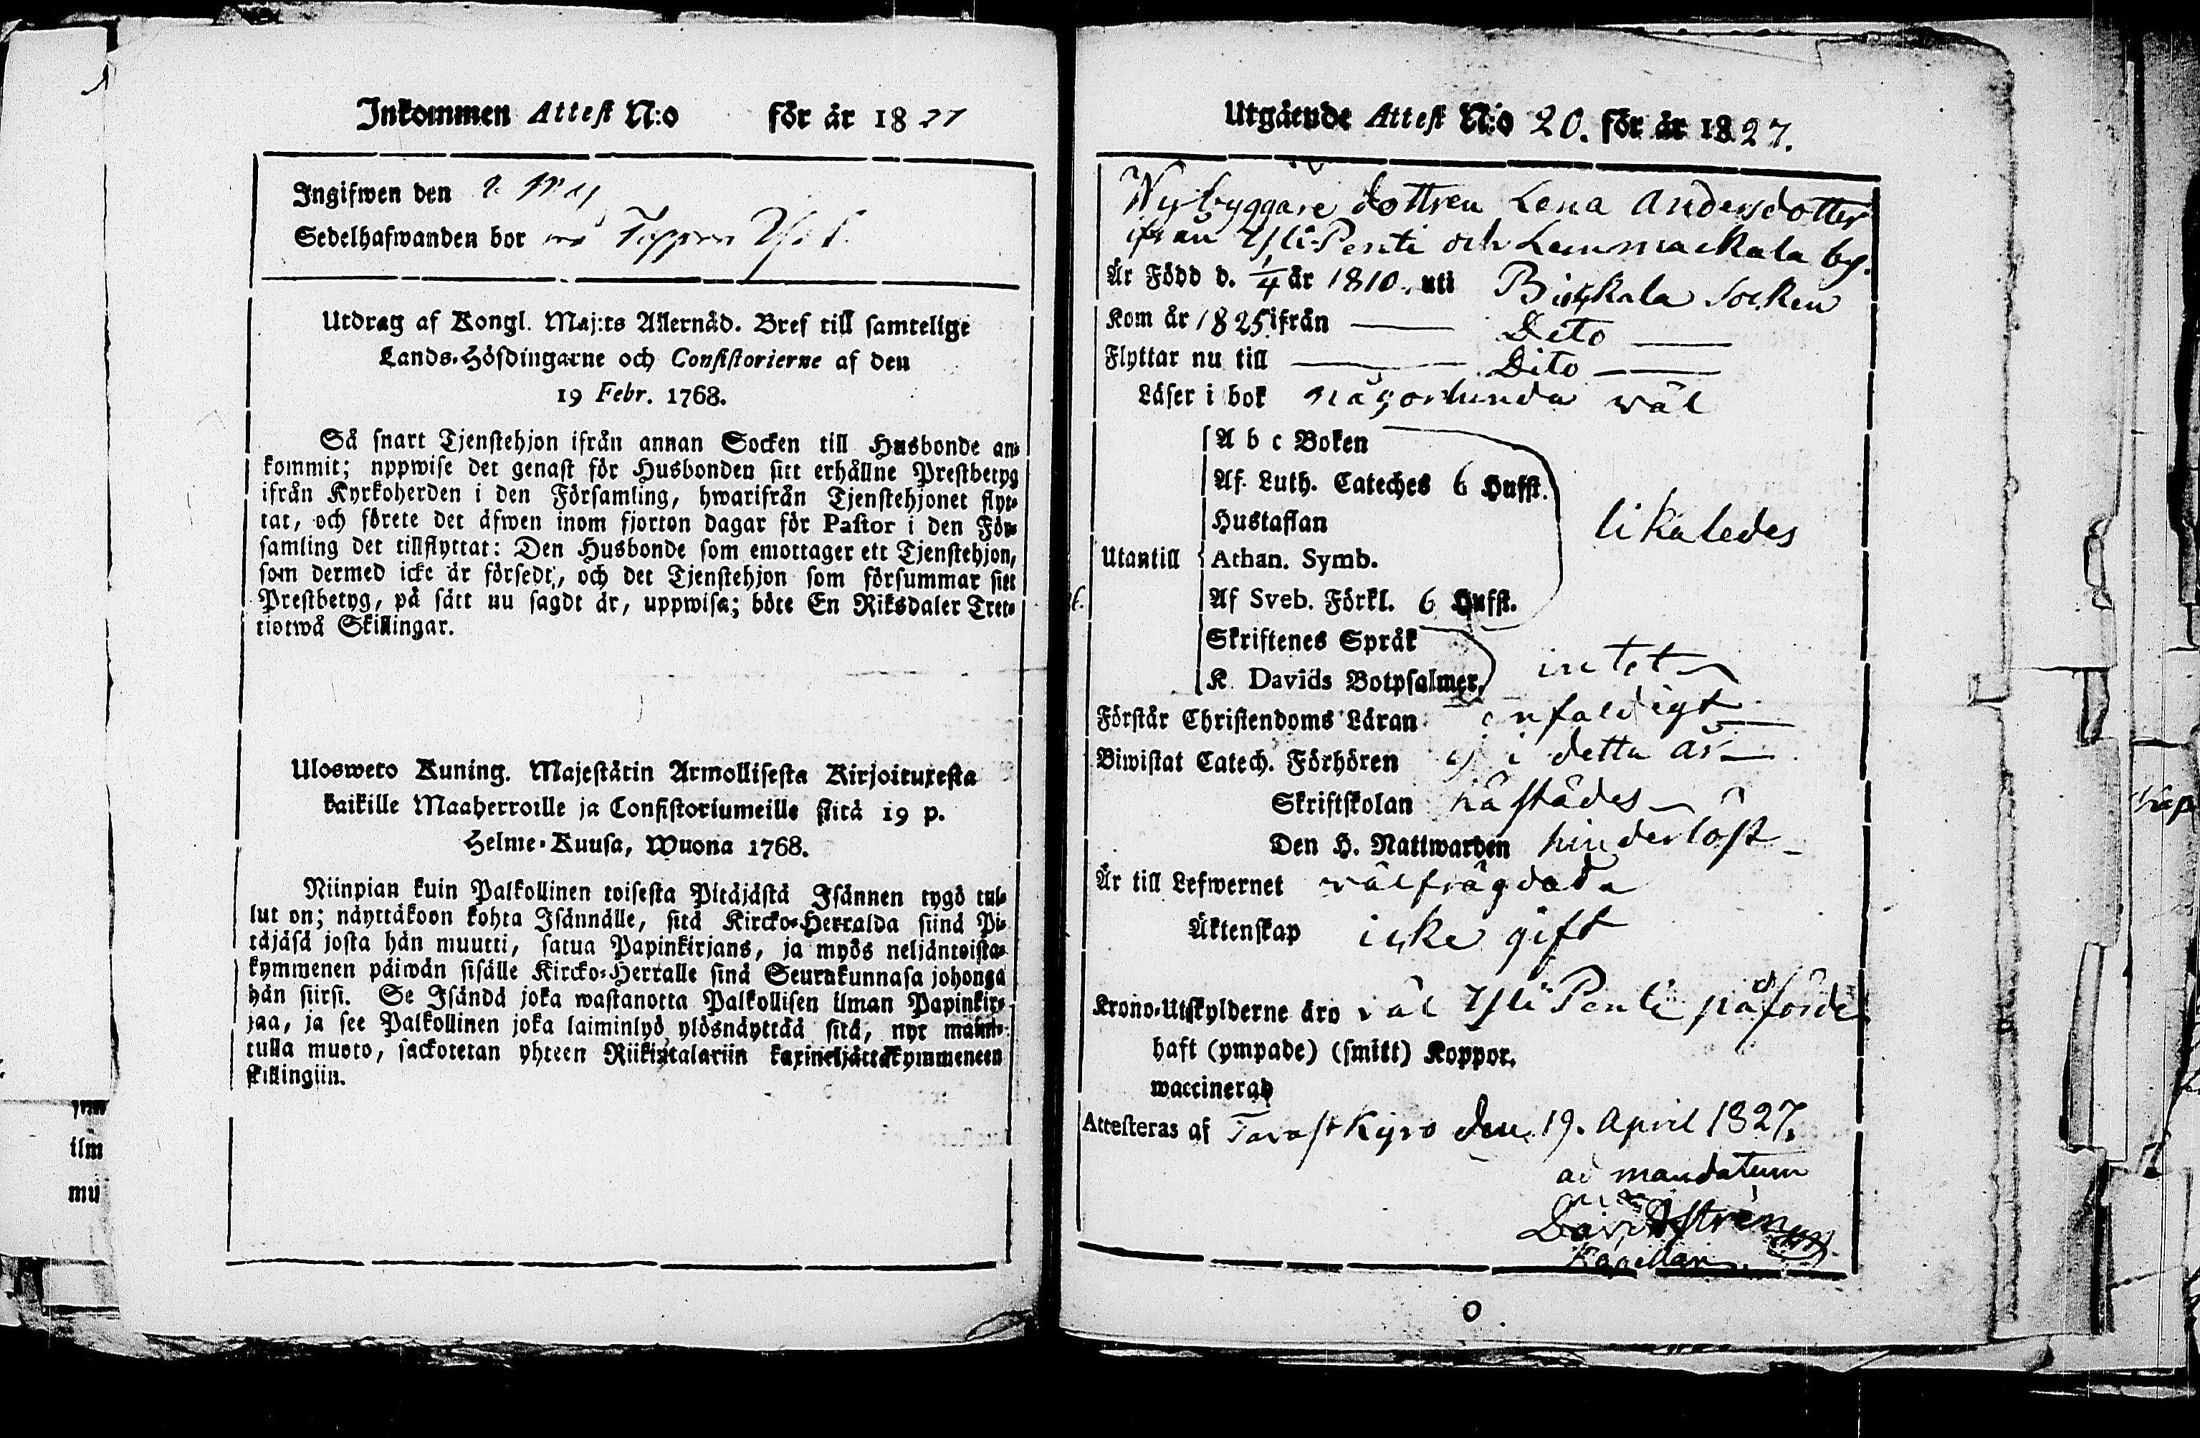 Inkommen Attest N:o för år 1827
Ingifwen den 2 May
Sedelhafwanden bor
Utdrag af Kongl. Maj:ts Allernåd. Bref till samtelige
Lands-Höfdingarne och Consistorierne af den
19 Febr. 1768.
Så snart Tjenstehjon ifrån annan Socken till Husbonde an-
kommit; uppwise det genast för Husbonden sitt erhållne Prestbetyg
ifrån Kyrkoherden i den Församling, hwarifrån Tjenstehjonet flyt-
tat, och förete det äfwen inom fjorton dagar för Pastor i den För-
samling det tillflyttat: Den Husbonde som emottager ett Tjenstehjon,
som dermed icke är försedt, och det Tjenstehjon som försummar sitt
Prestbetyg, på sätt nu sagdt är, uppwisa; böte En Riksdaler Tret-
tiotwå Skillingar.
Ulosweto Kuning. Majestätin Armollisesta Kirjoituxesta
kaikille Maaherroille ja Consistoriumeille siitä 19 p.
Helme-Kuusa, Wuona 1768.
Niinpian kuin Palkollinen toisesta Pitäjästä Isännen tygö tul-
lut on; näyttäkoon kohta Isännälle, sitä Kircko-Herralda siinä Pi-
täjäsä josta hän muutti, satua Papinkirjans, ja myös neljäntoista-
kymmenen päiwän sisälle Kircko-Herralle sinä Seurakunnasa johonga
hän siirsi. Se Isändä joka wastanotta Palkollisen ilman Papinkir-
jaa, ja see Palkollinen joka laiminlyö ylösnäyttää sitä, nyt main-
tulla muoto, sackotetan yhteen Riikintalariin kaxineljättäkymmeneen
skillingiin.
ilm
mu
Utgående Attest N:o 20. för år 1827.
Nybyggare dottren Lena Andersdotter
ifrån Yli-Penti och Lammackala by.
Är Född d. 1/4 år 1810. uti Birkkala Socken
Kom år 1825 ifrån — Deto —
Flyttar nu till — Dito —
Läser i bok någorlunda wäl
A b c Boken
Af Luth. Cateches 6 Hufst.
Hustaflan
likaledes
Utantill Athan. Symb.
Af Sveb. Förkl. 6 Hufst.
Skriftenes Språk
intet
K. Davids Botpsalmer,
Förstår Christendoms Läran enfaldigt —
Biwistat Catech. Förhören ej i detta år —
Skriftskolan härstädes
Den H. Nattwarden hinderlöst —
Är till Lefwernet wälfrägdada
Äktenskap icke gift
Krono-Utskylderne äro wäl Yli Penti påförde
haft (ympade) (smitt) Koppor.
waccinerad
Attesteras af Tavastkyro den 19. April 1827.
ad mandatum
David
Kapellan.